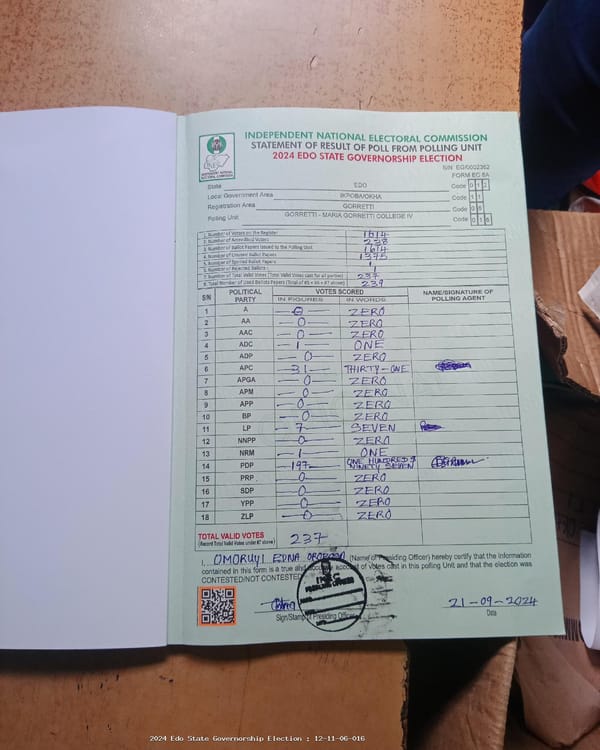 INDEPENDENT NATIONAL ELECTORAL COMMISSION
STATEMENT OF RESULT OF POLL FROM POLLING UNIT
2024 EDO STATE GOVERNORSHIP ELECTION
S/N EG/0002362
FORM EC 8A
State EDO Code 012
Local Government Area IKPOBA/OKHA Code 11
Registration Area GORRETTI Code 06
Polling Unit GORRETTI - MARIA GORRETTI COLLEGE IV Code 016
1. Number of Voters on the Register 1614
2. Number of Accredited Voters 238
3. Number of Ballot Papers Issued to the Polling Unit 1614
4. Number of Unused Ballot Papers 1375
5. Number of Spoiled Ballot Papers 1
6. Number of Rejected Ballots 1
7. Number of Total Valid Votes (Total Valid Votes cast for all parties) 237
8. Total Number of Used Ballots Papers (Total of #5 + #6 + #7 above) 239
S/N POLITICAL PARTY VOTES SCORED IN FIGURES IN WORDS NAME/SIGNATURE OF POLLING AGENT
1 A 0 ZERO
2 AA 0 ZERO
3 AAC 0 ZERO
4 ADC 1 ONE
5 ADP 0 ZERO
6 APC 31 THIRTY-ONE
7 APGA 0 ZERO
8 APM 0 ZERO
9 APP 0 ZERO
10 BP 0 ZERO
11 LP 7 SEVEN
12 NNPP 0 ZERO
13 NRM 1 ONE
14 PDP 197 ONE HUNDRED & NINETY SEVEN
15 PRP 0 ZERO
16 SDP 0 ZERO
17 YPP 0 ZERO
18 ZLP 0 ZERO
TOTAL VALID VOTES 237
(Record Total Valid Votes under #7 above)
I, OMORUYI EDNA (Name of Presiding Officer) hereby certify that the information
contained in this form is a true and account of votes cast in this polling Unit and that the election was
CONTESTED/NOT CONTESTED
INEC
PRESIDING OFFICER
21-09-2024
Sign/Stamp of Presiding Officer
Date
2024 Edo State Governorship Election : 12-11-06-016